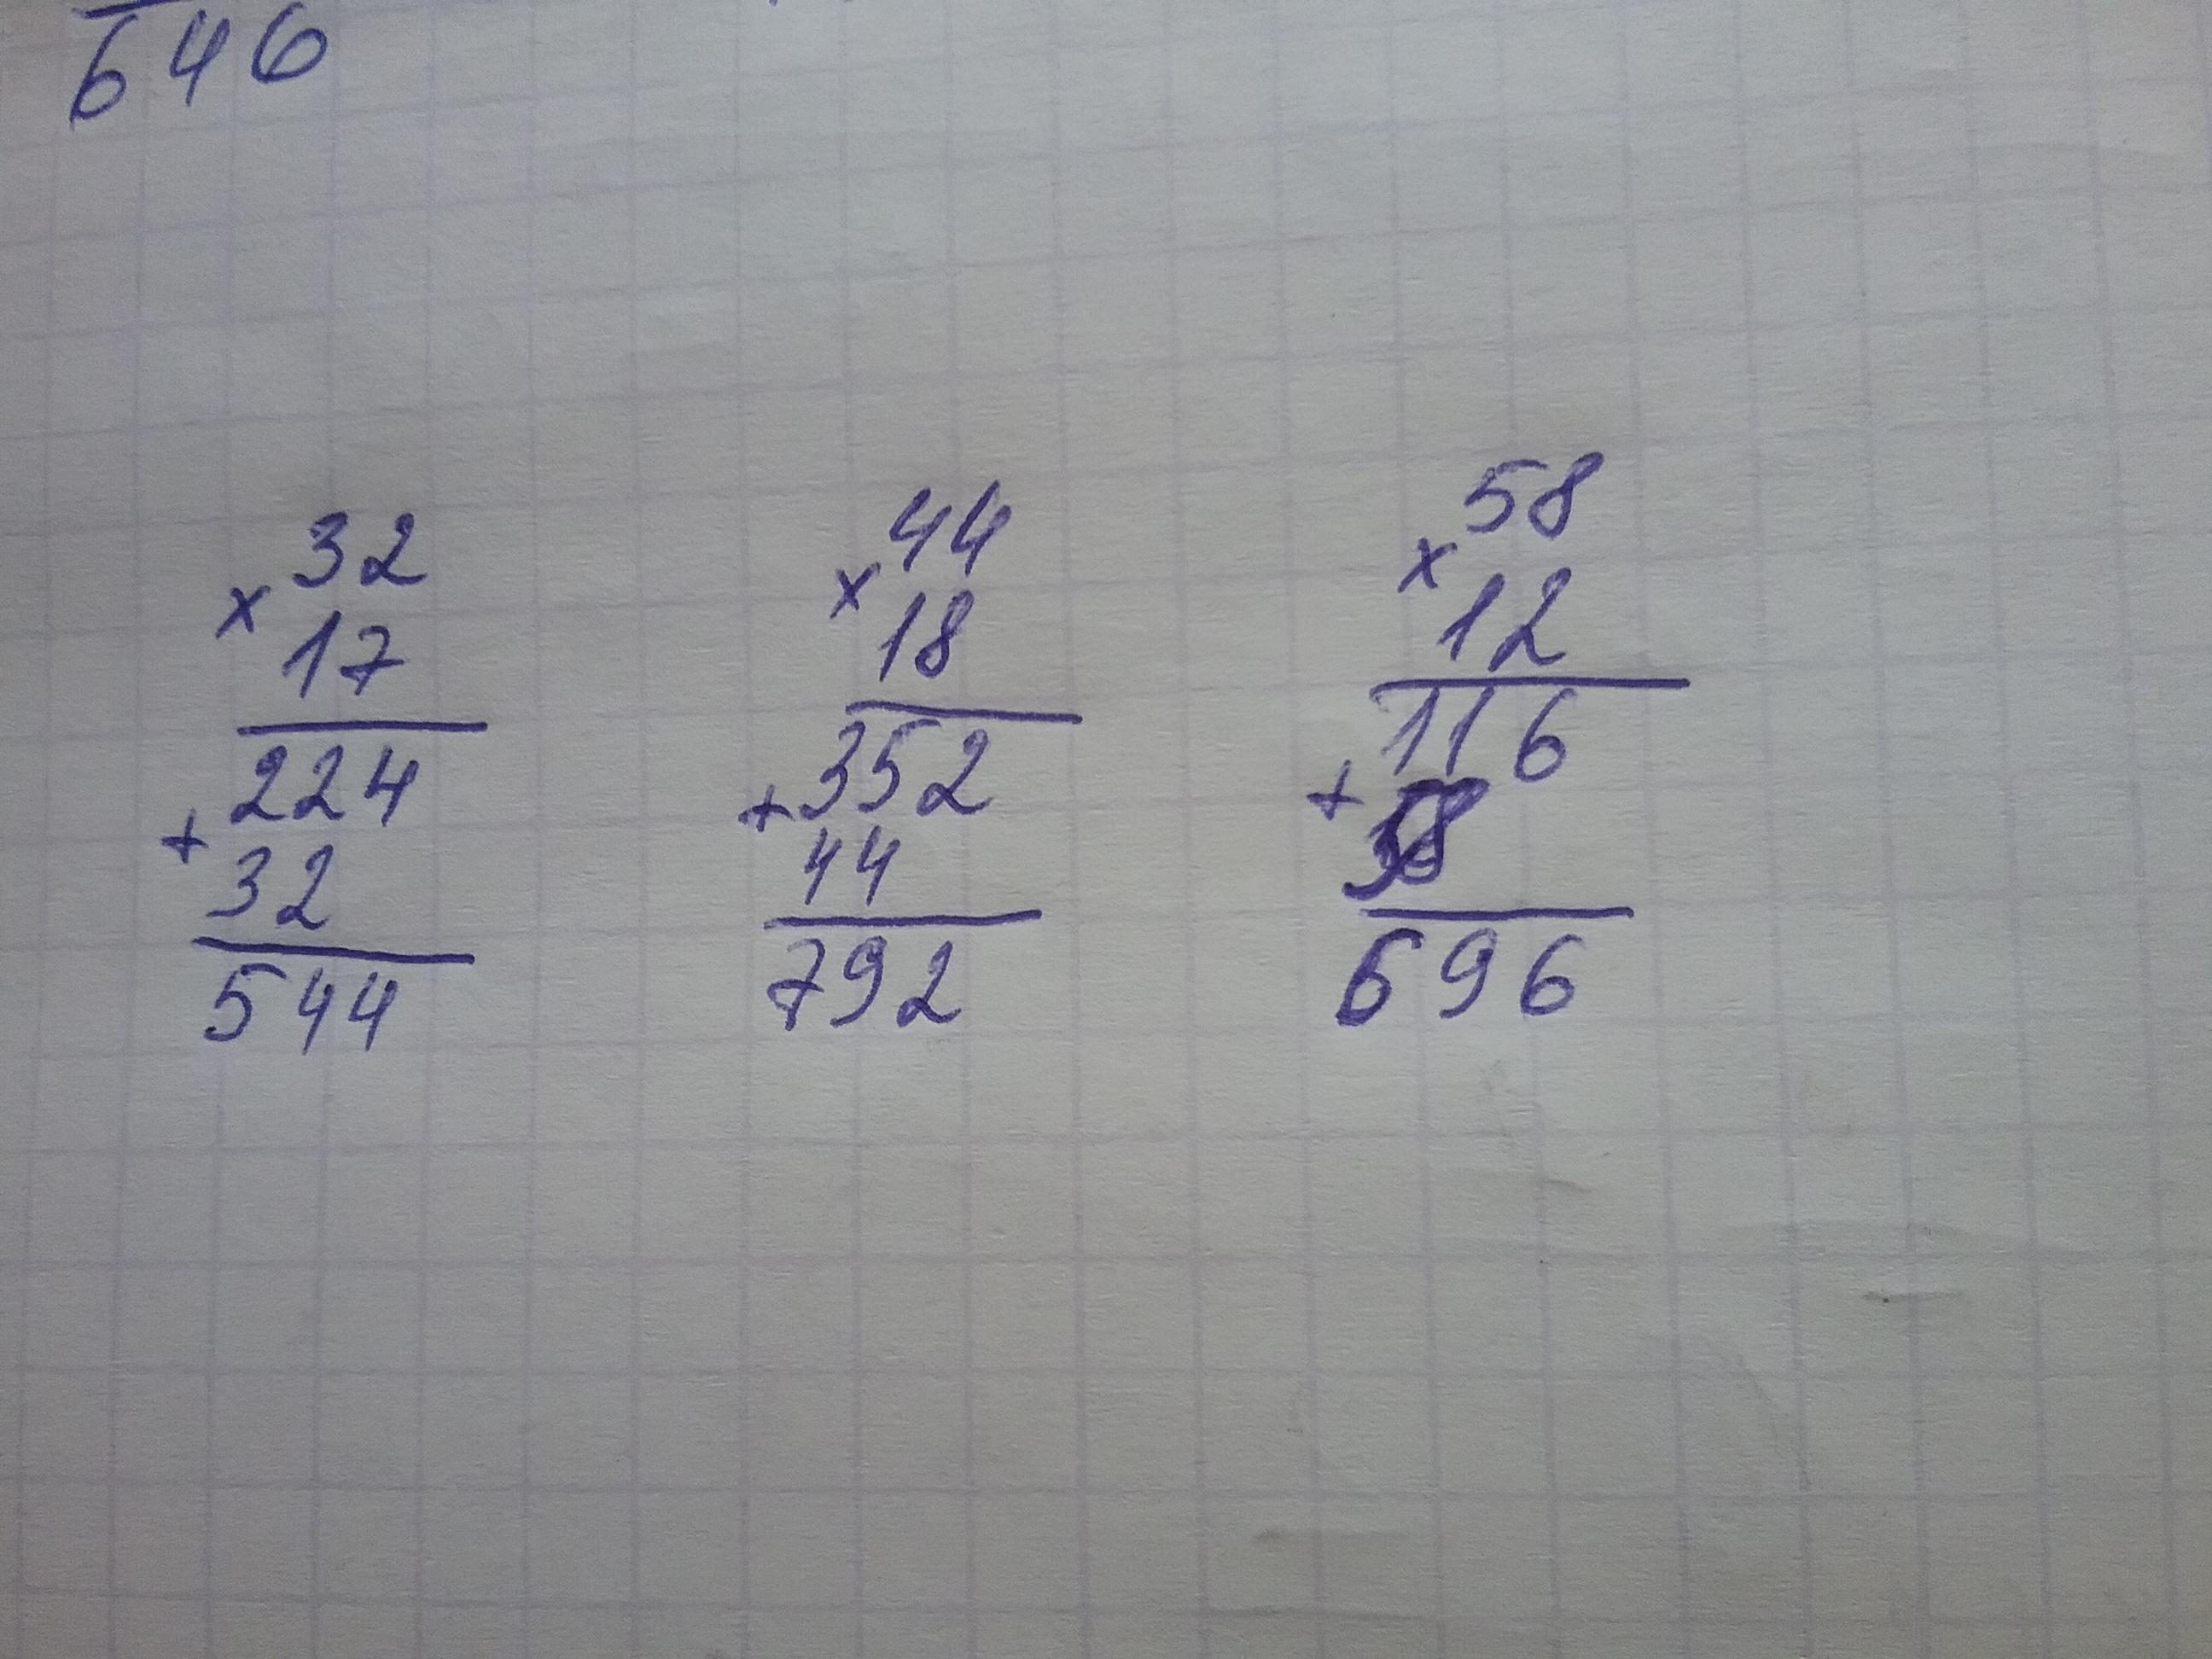 646
32
x
17
224
+
32
544
44
x
18
352
+
44
792
58
x
12
116
+
58
696